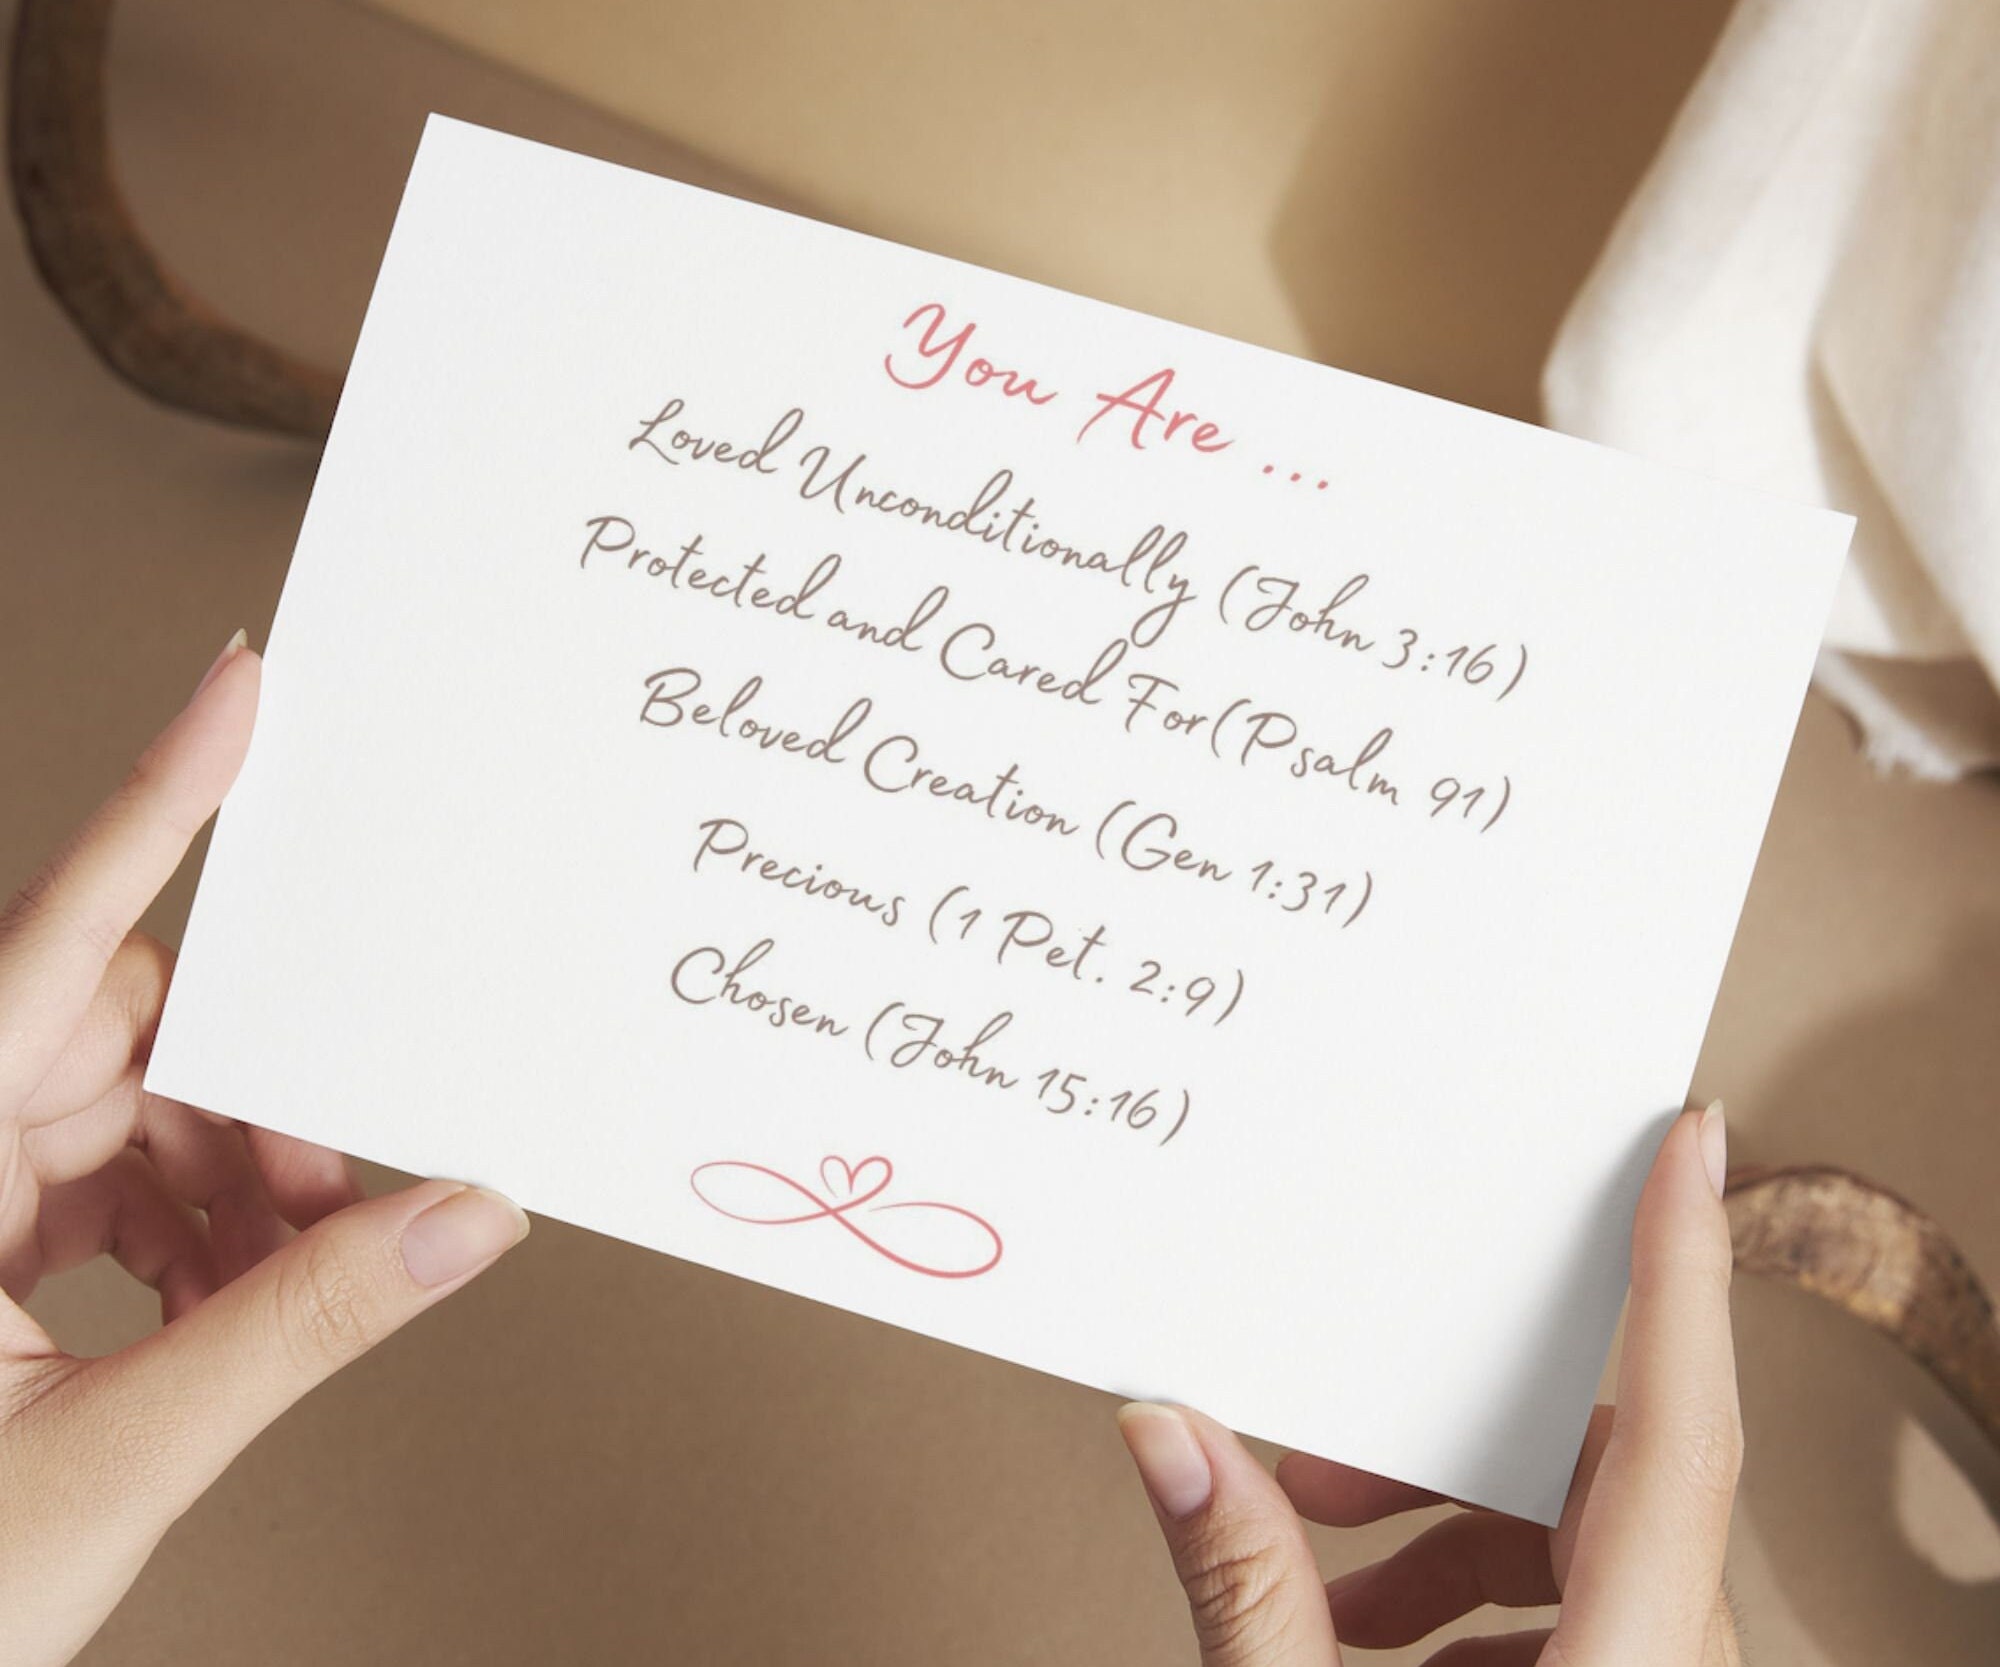 You Are ...
Loved Unconditionally (John 3:16)
Protected and Cared For(Psalm 91)
Beloved Creation (Gen 1:31)
Precious (1 Pet. 2:9)
Chosen (John 15:16)